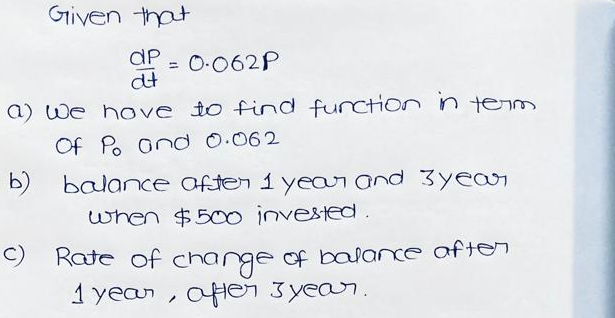 Given that
dP/dt = 0.062P
a) we have to find function in term
of P₀ and 0.062
b) balance after 1 year and 3 year
when $500 invested.
c) Rate of change of balance after
1 year, after 3 year.